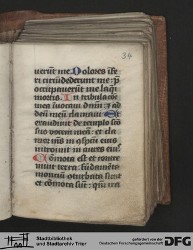 34
uerūt me Dolores īfe
ri circūdederunt me: p̄
occupauerūt me laq̄i
mortis. In tribulatiōe
mea īuocaui dn̄m: ⁊ ad
deū meū clamaui Et
exaudiuit de templo sctō
suo vocem meā: et cla
mor meus in conspectu
introiuit in aures eius
Cōmota est et contre
muit terra: fūdamēta
montiū cōturbata sunt
et cōmota sūt: qm̄ ira
Stadtbibliothek
und Stadtarchiv Trier
gefördert von der
Deutschen Forschungsgemeinschaft
DFG